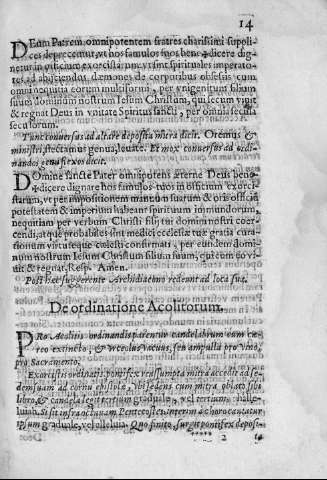 14
DEum Patrem omnipotentem fratres charissimi suppli-
ces deprecemur, vt hos famulos suos bene✠dicere dig-
netur in officium exorcistarum, vt sint spirituales imperato-
res ad abijciendos dæmones de corporibus obsessis cum
omni nequitia eorum multiformi, per vnigenitum filium
suum dominum nostrum Iesum Christum, qui secum viuit
& regnat Deus in vnitate Spiritus sancti, per omnia secula
seculorum.
Tunc conuersus ad altare deposita mitra dicit. Oremus &
ministri, flectamus genua, leuate. Et mox conuersus ad ordi-
nandos genuflexos dicit.
DOmine sancte Pater omnipotens æterne Deus bene
✠dicere dignare hos famulos tuos in officium exorci-
starum, vt per impositionem manuum suarum & oris officium
potestatem & imperium habeant spirituum immundorum,
nequitiam per verbum Christi filij tui domini nostri coer-
cendi, atque probabiles sint medici ecclesiæ tuæ gratia cura-
tionum virtuteque cælesti confirmati, per eundem domi-
num nostrum Iesum Christum filium suum, qui tecum vi-
uit & regnat, Resp. Amen.
Post hæc suggerente Archidiacono redeunt ad loca sua.
De ordinatione Acolitorum.
PRo Acolitis ordinandis paretur candelabrum cum ce-
reo extincto, & vrceolus vacuus, seu ampulla pro vino,
pro Sacramento.
Exorcistis ordinatis, pontifex resumpta mitra accedit ad se-
dem suam ad cornu epistolæ, vbi sedens cum mitra
libro, & candela legitur tertium graduale, vel tertium
luiam. Si sit infra octauam Pentecostes, interim à choro cantatur
ipsum graduale, vel alleluia. Quo finito, surgit pontifex deposi-
2
ta